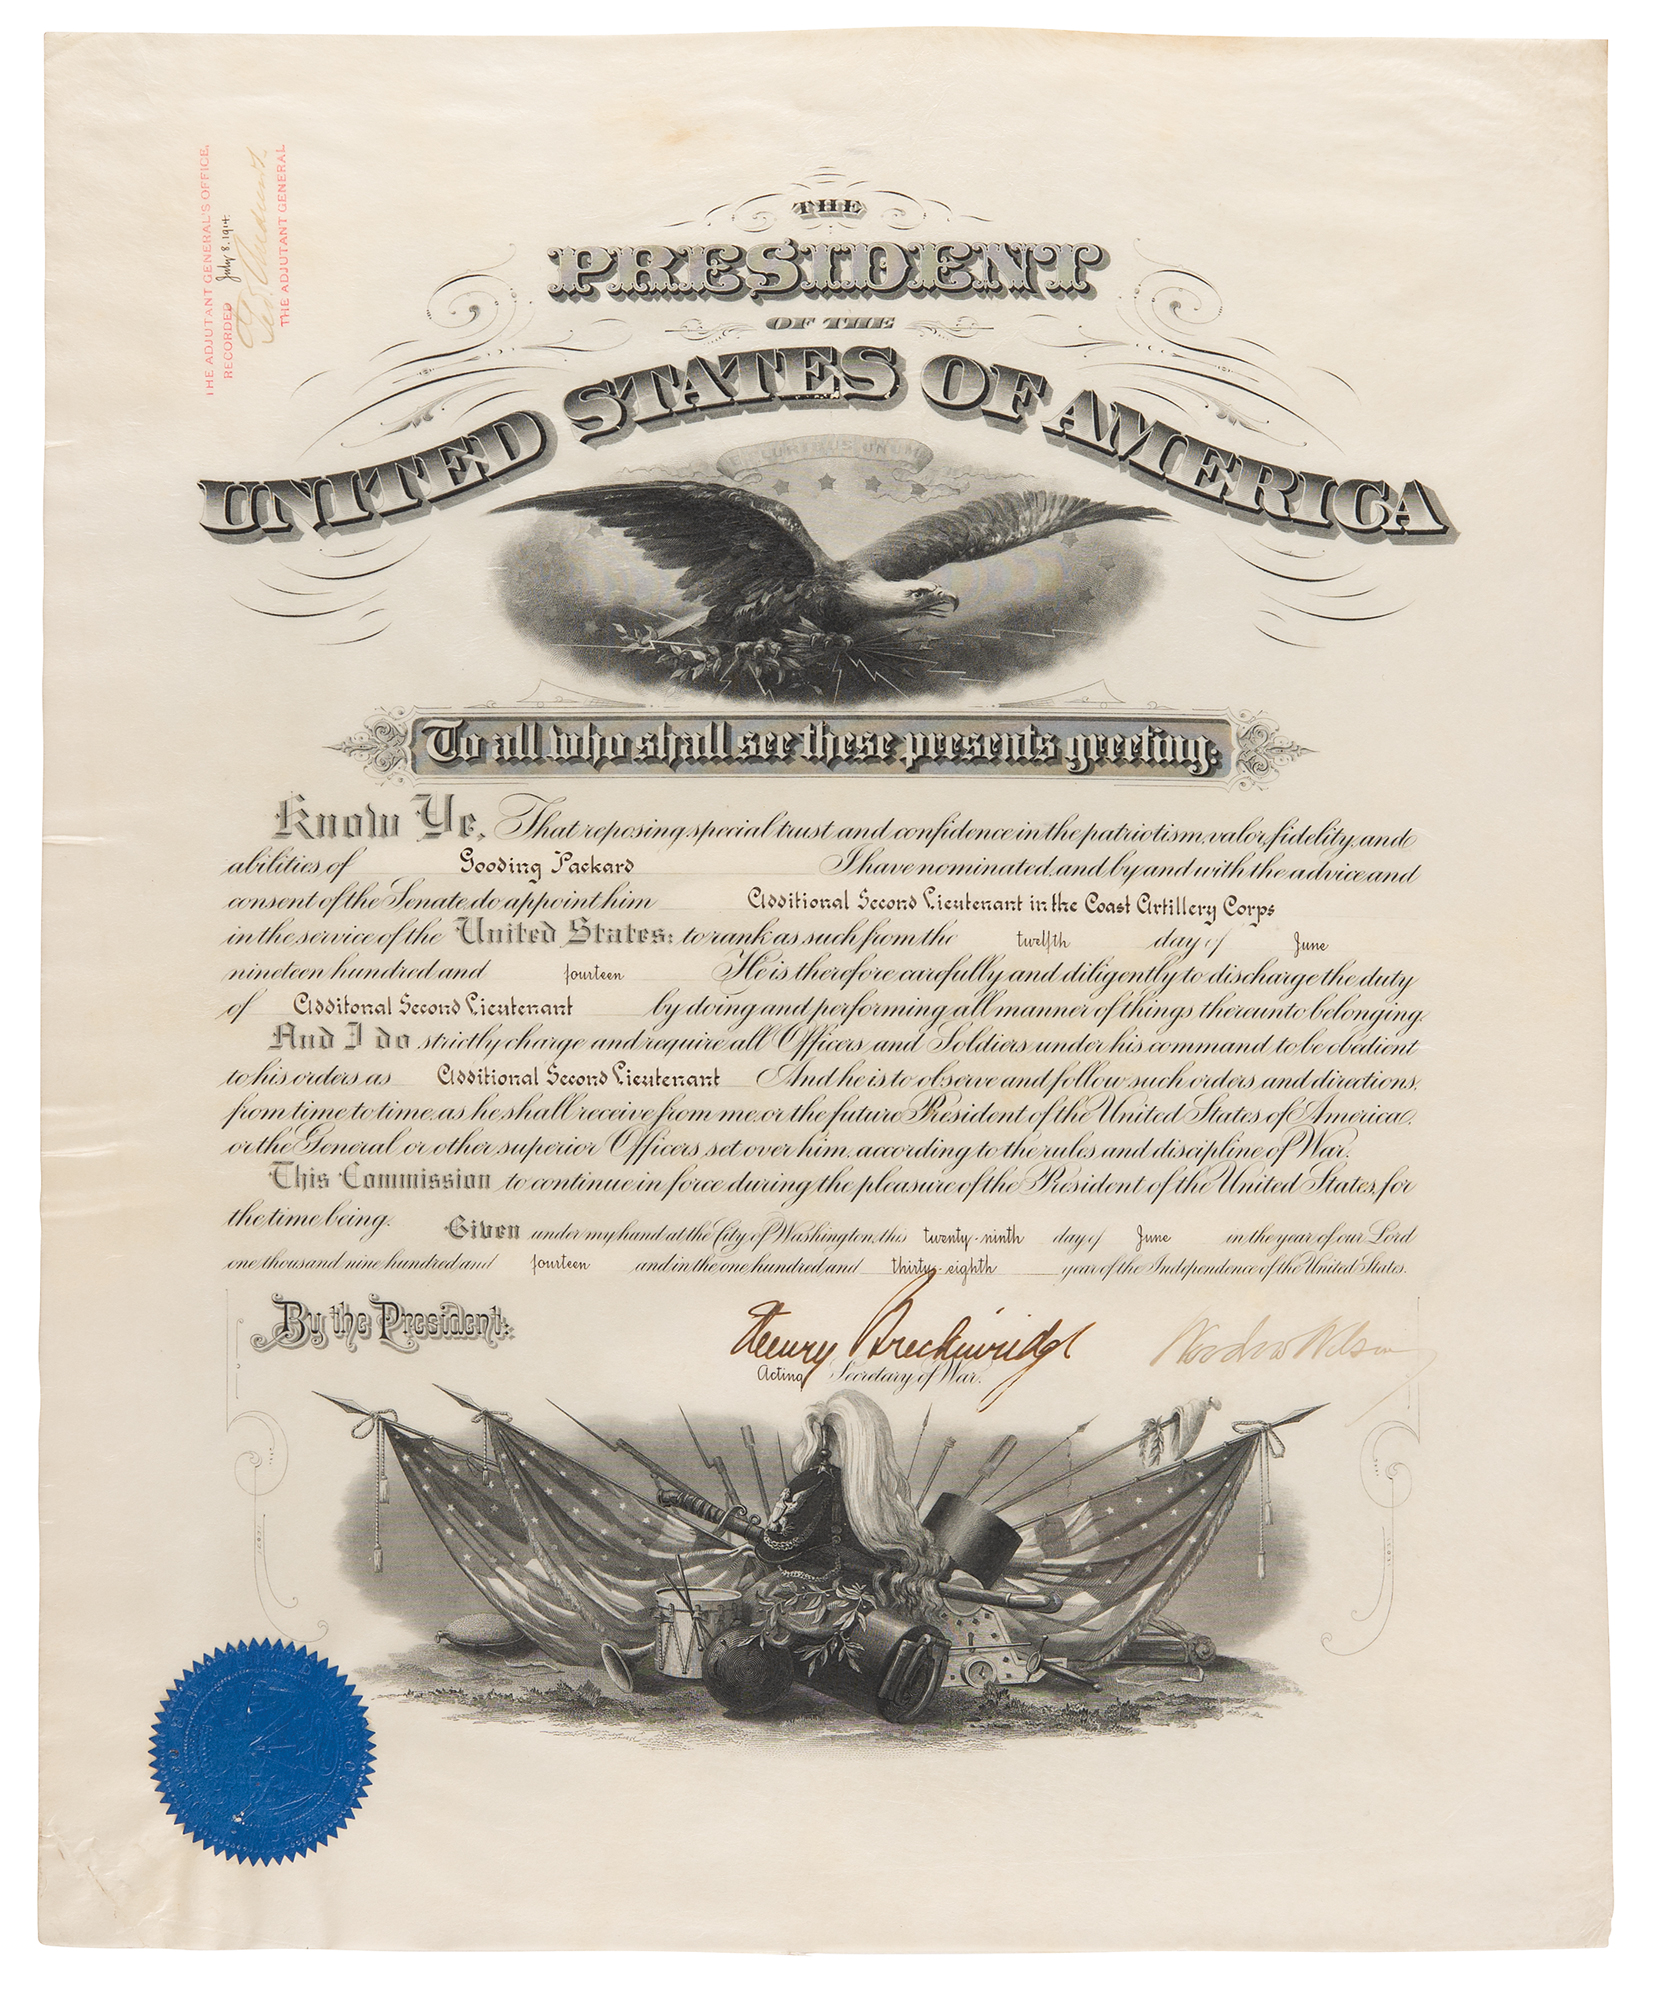 THE ADJUTANT GENERAL'S OFFICE,
RECORDED July 8, 1914.
THE ADJUTANT GENERAL
THE
PRESIDENT
OF THE
UNITED STATES OF AMERICA
E PLURIBUS UNUM
To all who shall see these presents greeting:
Know Ye, That reposing special trust and confidence in the patriotism, valor, fidelity, and
abilities of Gooding Packard I have nominated, and by and with the advice and
consent of the Senate, do appoint him Additional Second Lieutenant in the Coast Artillery Corps
in the service of the United States: to rank as such from the twelfth day of June
nineteen hundred and fourteen He is therefore carefully and diligently to discharge the duty
of Additonal Second Lieutenant by doing and performing all manner of things thereunto belonging.
And I do strictly charge and require all Officers and Soldiers under his command to be obedient
to his orders as Additional Second Lieutenant And he is to observe and follow such orders and directions,
from time to time, as he shall receive from me, or the future President of the United States of America,
or the General or other superior Officers set over him, according to the rules and discipline of War.
This Commission to continue in force during the pleasure of the President of the United States, for
the time being. Given under my hand at the City of Washington, this twenty-ninth day of June in the year of our Lord
one thousand nine hundred and fourteen and in the one hundred and thirty-eighth year of the Independence of the United States.
By the President:
Henry Breckinridge
Woodrow Wilson
Acting Secretary of War.